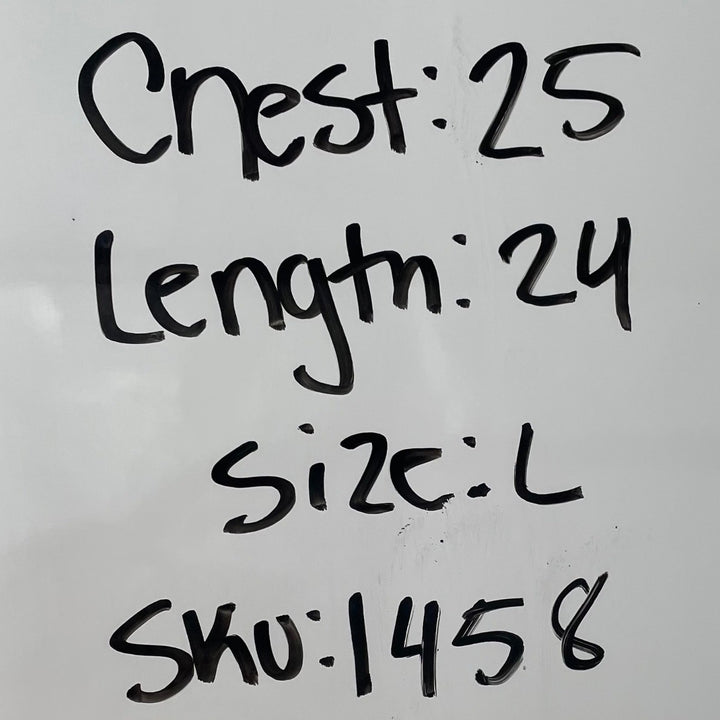 Chest: 25
Length: 24
Size: L
SKU: 1458